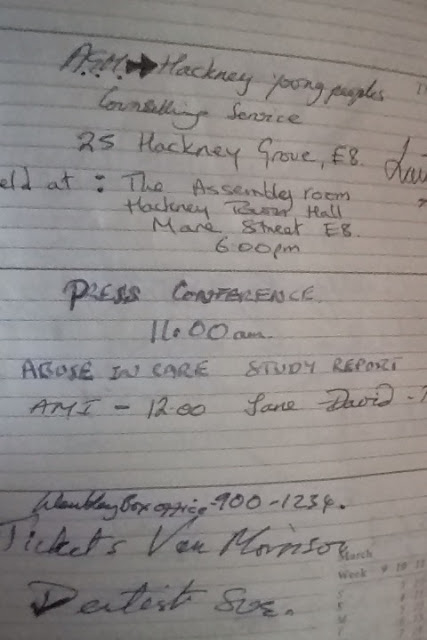 A.G.M. → Hackney young peoples
Counselling Service
25 Hackney Grove, E8.
eld at : The Assembly room
Hackney Town Hall
Mare Street E8.
6.00pm
PRESS CONFERENCE.
11.00am.
ABUSE IN CARE STUDY REPORT
AMI - 12.00 Jane David -
Wembley Box office - 900-1234.
Tickets Van Morrison
March
Week 9 10 11
S
M
Dentist Sue.